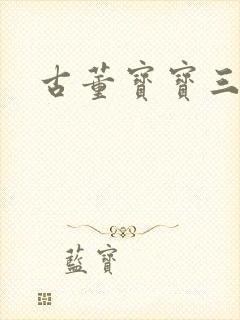 古董寶寶三
藍寶